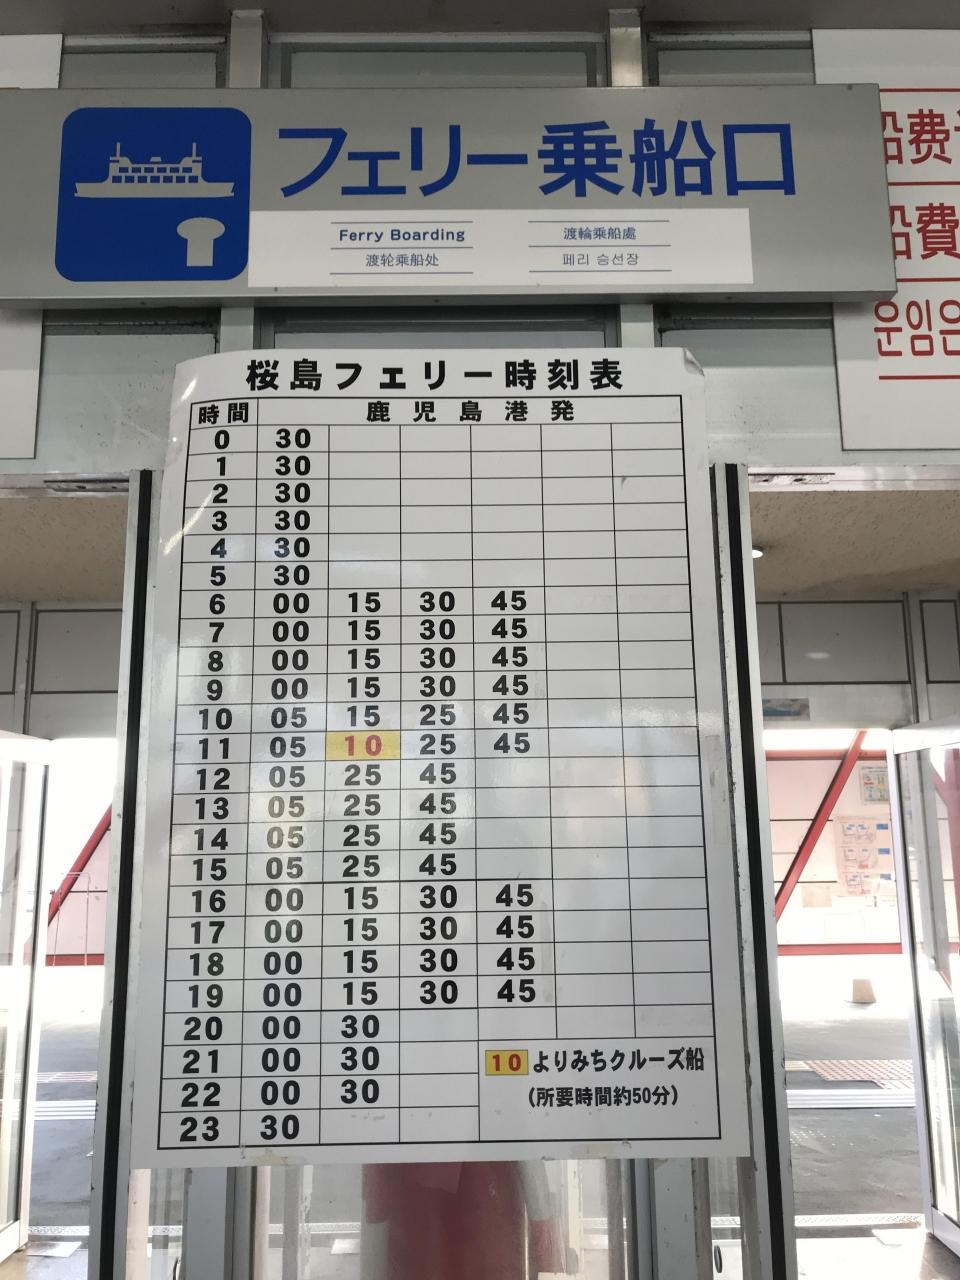 フェリー乗船口
Ferry Boarding
渡輪乗船處
渡轮乘船处
페리 승선장
船费
船費
운임은
桜島フェリー時刻表
時間 鹿児島港発
0 30
1 30
2 30
3 30
4 30
5 30
6 00 15 30 45
7 00 15 30 45
8 00 15 30 45
9 00 15 30 45
10 05 15 25 45
11 05 10 25 45
12 05 25 45
13 05 25 45
14 05 25 45
15 05 25 45
16 00 15 30 45
17 00 15 30 45
18 00 15 30 45
19 00 15 30 45
20 00 30
21 00 30
22 00 30
23 30
10 よりみちクルーズ船
(所要時間約50分)